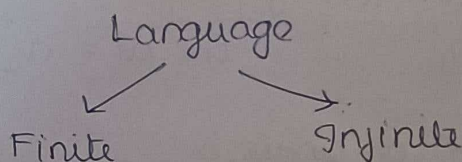 Language
Finite Infinite